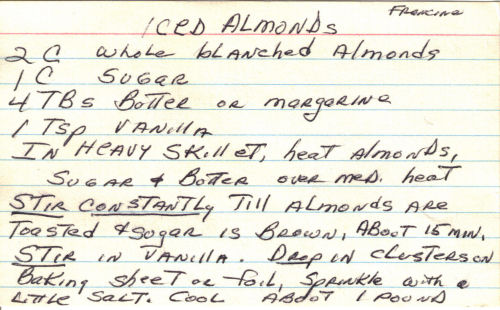 Francine
ICED ALMONDS
2 C whole blANched Almonds
1 C SUGAR
4 TBs BUTTER or margarine
1 Tsp VANIllA
IN HEAVY SKillET, heat Almonds,
SUGAR & BUTTER over med. heat
STIR CONSTANTLY Till ALMONDS ARE
Toasted & Sugar is BROWN, ABOUT 15 MIN.
STIR in VANILLA. DROP IN CLUSTERS ON
BAking sheet or foil, Sprinkle with a
little SALT. COOL ABOUT 1 POUND